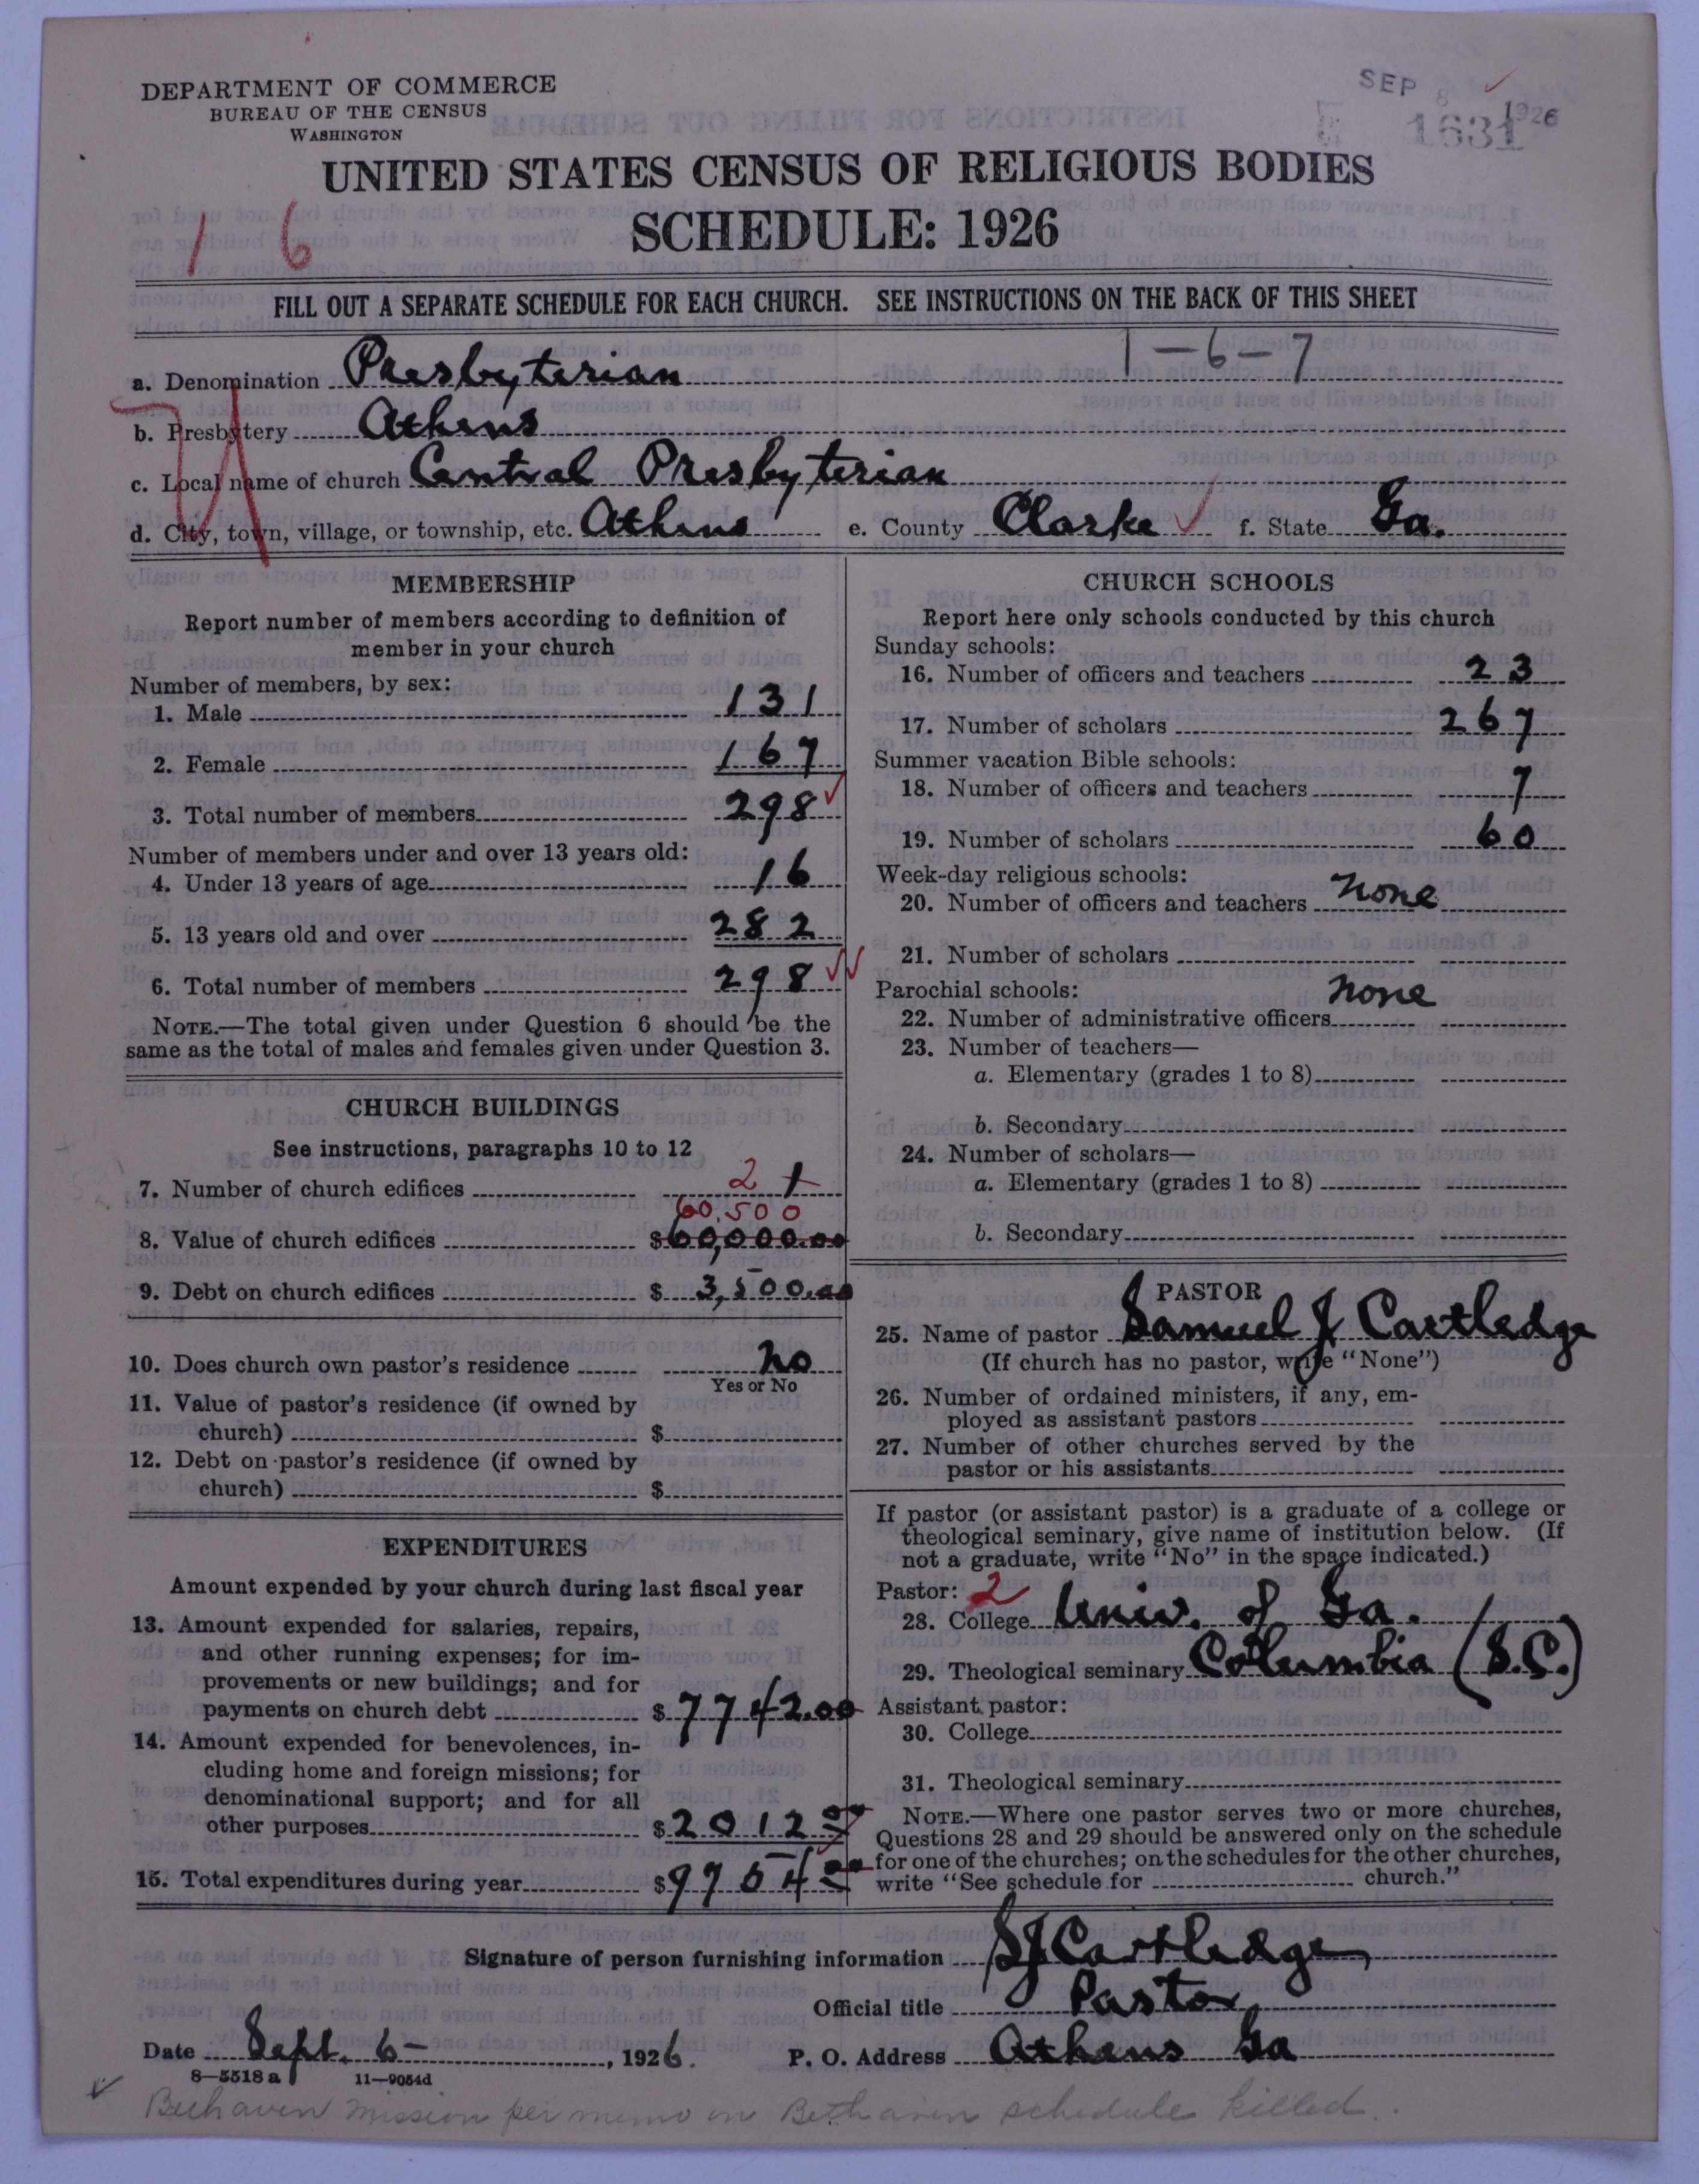 DEPARTMENT OF COMMERCE
BUREAU OF THE CENSUS
WASHINGTON
SEP 8 1926
1631
UNITED STATES CENSUS OF RELIGIOUS BODIES
SCHEDULE: 1926
1 6
FILL OUT A SEPARATE SCHEDULE FOR EACH CHURCH. SEE INSTRUCTIONS ON THE BACK OF THIS SHEET
1-6-7
a. Denomination Presbyterian
b. Presbytery Athens
c. Local name of church Central Presbyterian
d. City, town, village, or township, etc. Athens e. County Clarke f. State Ga.
MEMBERSHIP
Report number of members according to definition of
member in your church
Number of members, by sex:
1. Male 131
2. Female 167
3. Total number of members 298
Number of members under and over 13 years old:
4. Under 13 years of age 16
5. 13 years old and over 282
6. Total number of members 298
NOTE.—The total given under Question 6 should be the
same as the total of males and females given under Question 3.
CHURCH BUILDINGS
See instructions, paragraphs 10 to 12
7. Number of church edifices 2 1
60.500
8. Value of church edifices $60,000.00
9. Debt on church edifices $ 3,500.00
10. Does church own pastor's residence no
Yes or No
11. Value of pastor's residence (if owned by
church) $
12. Debt on pastor's residence (if owned by
church) $
EXPENDITURES
Amount expended by your church during last fiscal year
13. Amount expended for salaries, repairs,
and other running expenses; for im-
provements or new buildings; and for
payments on church debt $7742.00
14. Amount expended for benevolences, in-
cluding home and foreign missions; for
denominational support; and for all
other purposes $2012 00
15. Total expenditures during year $9754 00
CHURCH SCHOOLS
Report here only schools conducted by this church
Sunday schools:
16. Number of officers and teachers 23
17. Number of scholars 267
Summer vacation Bible schools:
18. Number of officers and teachers 7
19. Number of scholars 60
Week-day religious schools:
20. Number of officers and teachers none
21. Number of scholars
Parochial schools:
22. Number of administrative officers none
23. Number of teachers—
a. Elementary (grades 1 to 8)
b. Secondary
24. Number of scholars—
a. Elementary (grades 1 to 8)
b. Secondary
PASTOR
25. Name of pastor Samuel J Cartledge
(If church has no pastor, write "None")
26. Number of ordained ministers, if any, em-
ployed as assistant pastors
27. Number of other churches served by the
pastor or his assistants
If pastor (or assistant pastor) is a graduate of a college or
theological seminary, give name of institution below. (If
not a graduate, write "No" in the space indicated.)
Pastor: 2
28. College Univ. of Ga.
29. Theological seminary Columbia (S.C.)
Assistant pastor:
30. College
31. Theological seminary
NOTE.—Where one pastor serves two or more churches,
Questions 28 and 29 should be answered only on the schedule
for one of the churches; on the schedules for the other churches,
write "See schedule for church."
Signature of person furnishing information SJ Cartledge,
Official title Pastor,
Date Sept. 6-, 1926. P. O. Address Athens Ga
8—5518 a 11—9054d
Bethaven mission per memo on Bethaven schedule killed.